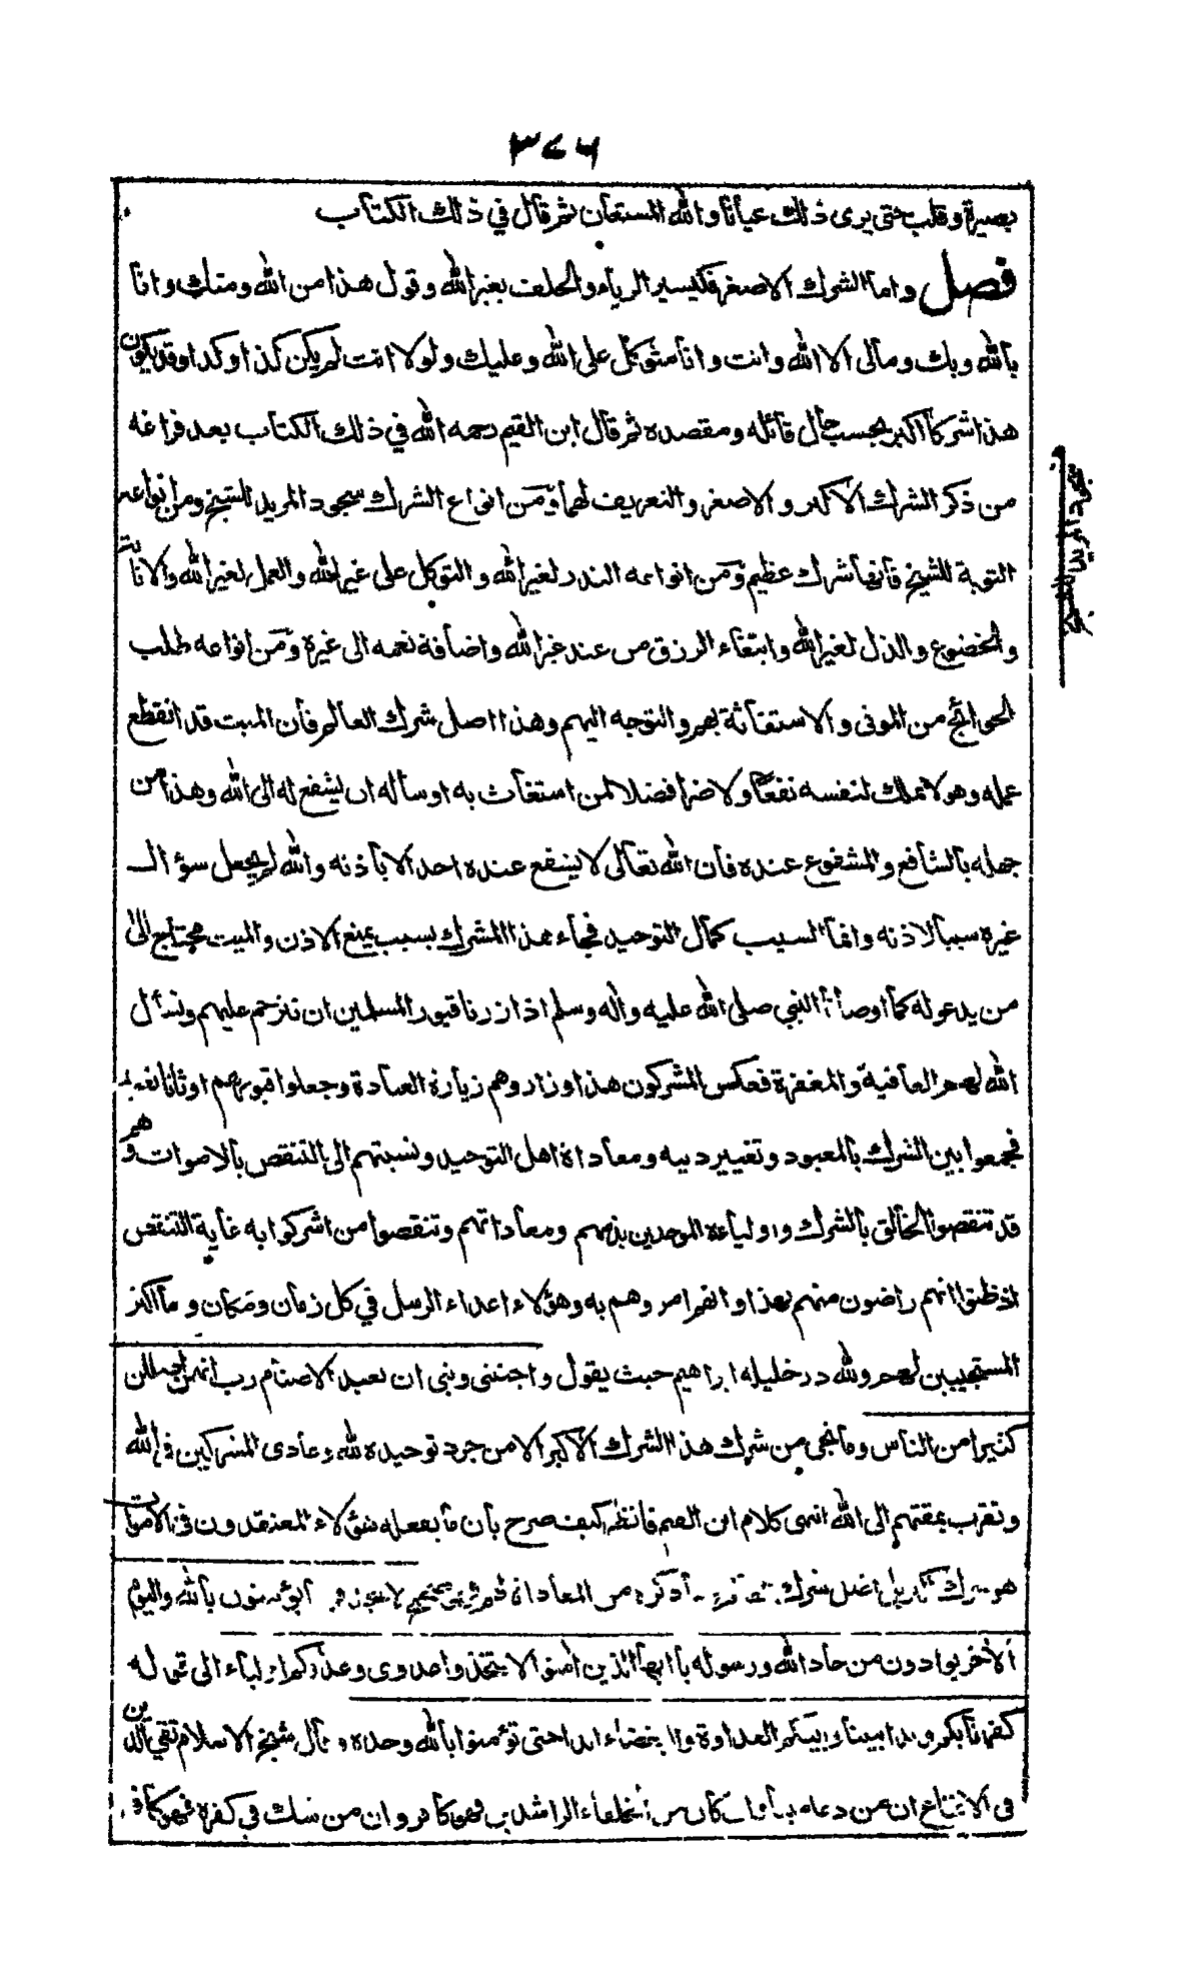 ٣٧٦
بصيرة وقلب حتى يرى ذلك عيانا والله المستعان ثم قال في ذلك الكتاب
فصل واما الشرك الاصغر فكيسير الرياء والحلف بغير الله وقول هذا من الله ومنك وانا
بالله وبك ومالى الا الله وانت وانا متوكل على الله وعليك ولولا انت لم يكن كذا وكذا وقد يكون
هذا شركا اكبر بحسب حال قائله ومقصده ثم قال ابن القيم رحمه الله في ذلك الكتاب بعد فراغه
من ذكر الشرك الاكبر والاصغر والتعريف لهما ومن انواع الشرك سجود المريد للشيخ ومن انواعه
التوبة للشيخ فانها شرك عظيم ومن انواعه النذر لغير الله والتوكل على غير الله والعمل لغير الله والانابة
والخضوع والذل لغير الله وابتغاء الرزق من عند غير الله واضافة نعمه الى غيره ومن انواعه طلب
الحوائج من الموتى والاستغاثة بهم والتوجه اليهم وهذا اصل شرك العالم فان الميت قد انقطع
عمله وهو لا يملك لنفسه نفعا ولا ضرا فضلا لمن استغاث به او ساله ان يشفع له الى الله وهذا من
جهله بالشافع والمشفوع عنده فان الله تعالى لا يشفع عنده احد الا باذنه والله لم يجعل سؤال
غيره سببا لاذنه وانما السبب كمال التوحيد فجاء هذا المشرك بسبب يمنع الاذن والميت محتاج الى
من يدعو له كما اوصانا النبي صلى الله عليه واله وسلم اذا زرنا قبور المسلمين ان نترحم عليهم ونسأل
الله لهم العافية والمغفرة فعكس المشركون هذا وزاروهم زيارة العبادة وجعلوا قبورهم اوثانا تعبد
فجمعوا بين الشرك بالمعبود وتغيير دينه ومعاداة اهل التوحيد ونسبتهم الى التنقص بالاموات وهم
قد تنقصوا الخالق بالشرك واولياءه الموحدين بذمهم ومعاداتهم وتنقصوا من اشركوا به غاية التنقص
اذ ظنوا انهم راضون منهم بهذا وانهم امروهم به وهؤلاء اعداء الرسل في كل زمان ومكان وما اكثر
المستجيبين لهم ولله در خليله ابراهيم حيث يقول واجنبنى وبنى ان نعبد الاصنام رب انهن اضللن
كثيرا من الناس وما نجى من شرك هذا الشرك الاكبر الا من جرد توحيده لله وعادى المشركين في الله
وتقرب بمقتهم الى الله انتهى كلام ابن القيم فانظر كيف صرح بان ما يفعله هؤلاء المعتقدون في الاموات
هو شرك اكبر بل اصل شرك العالم وما ذكره من المعاداة لهم فهو صحيح لا تجد قوما يؤمنون بالله واليوم
الاخر يوادون من حاد الله ورسوله يا ايها الذين امنوا لا تتخذوا عدوى وعدوكم اولياء الى قوله
كفرنا بكم وبدا بيننا وبينكم العداوة والبغضاء ابدا حتى تؤمنوا بالله وحده وقال شيخ الاسلام تقي الدين
في الاقناع ان من دعا
الخلفاء الراشدين فهو كافر وان من شك في كفره فهو كافر